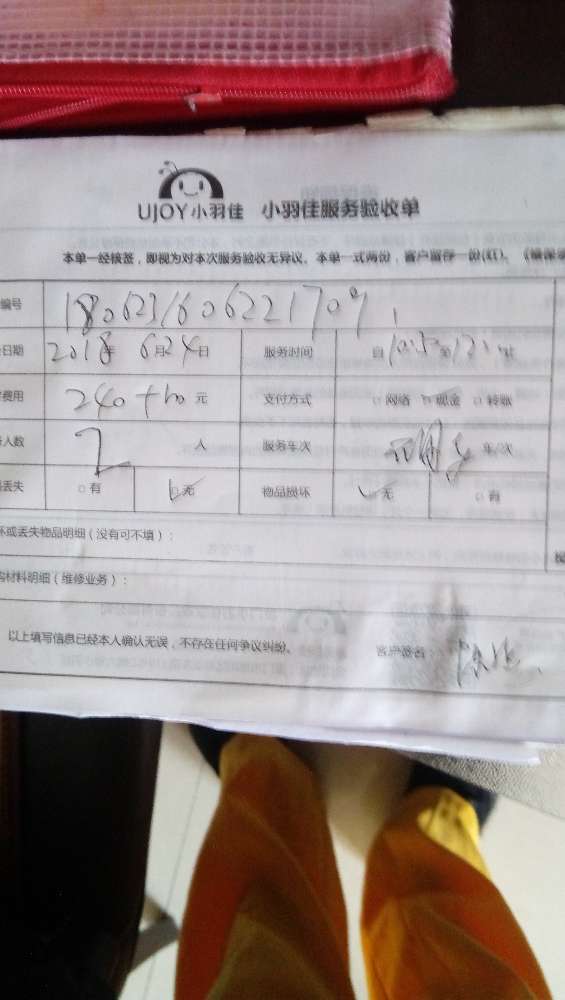 UJOY小羽佳 小羽佳服务验收单
本单一经核签，即视为对本次服务验收无异议。本单一式两份，客户留存一份(红)。
编号 180623160622170
日期 2018年 6月24日 服务时间 自 至
费用 240+ 元 支付方式 □网络 □现金 □转账
人数 2 人 服务车次 车/次
丢失 □有 □无 物品损坏 无 □有
坏或丢失物品明细（没有可不填）：
材料明细（维修业务）：
以上填写信息已经本人确认无误，不存在任何争议纠纷。 客户签名：